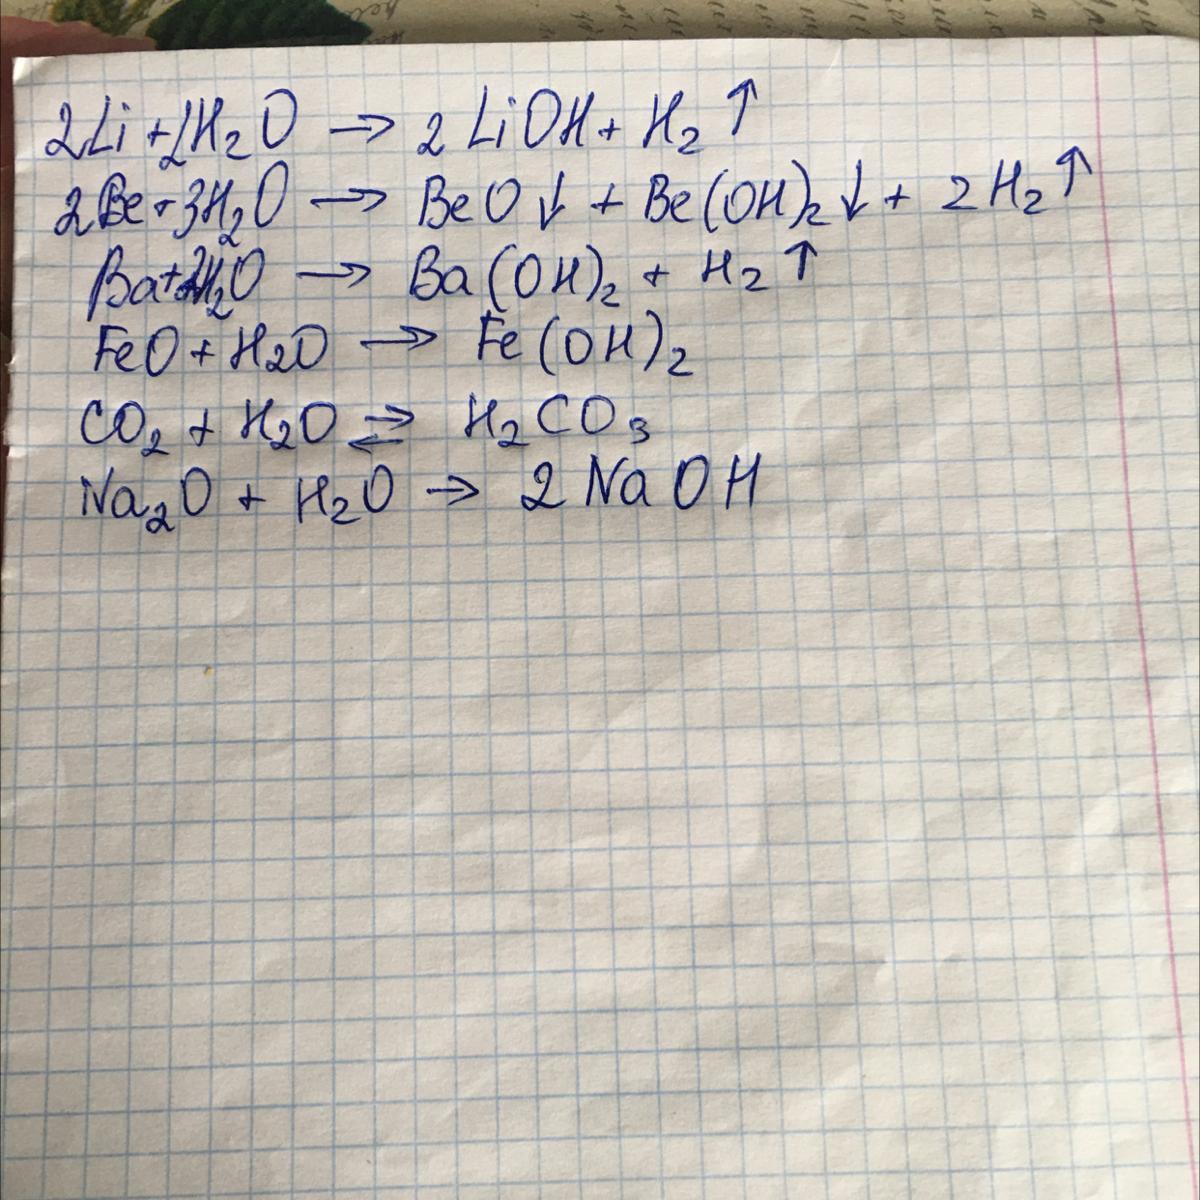 2Li + 2H₂O → 2LiOH + H₂↑
2Be + 3H₂O → BeO↓ + Be(OH)₂↓ + 2H₂↑
Ba + 2H₂O → Ba(OH)₂ + H₂↑
FeO + H₂O → Fe(OH)₂
CO₂ + H₂O ⇌ H₂CO₃
Na₂O + H₂O → 2NaOH